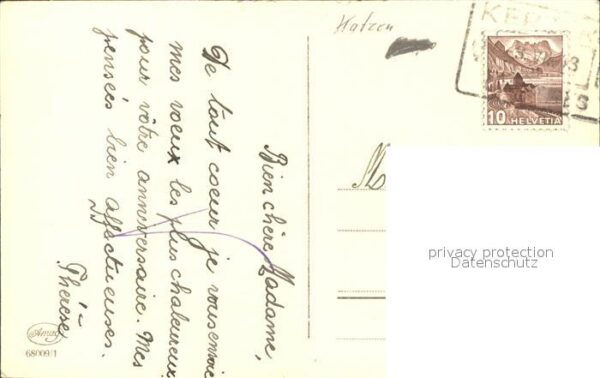 Katzen
KER
10 HELVETIA
Bien chère Madame,
De tout coeur je vous envoie
mes voeux les plus chaleureux
pour vôtre anneversaire. Mes
pensées bien affectueuses.
Thérèse
M
privacy protection
Datenschutz
Amag
68009/1